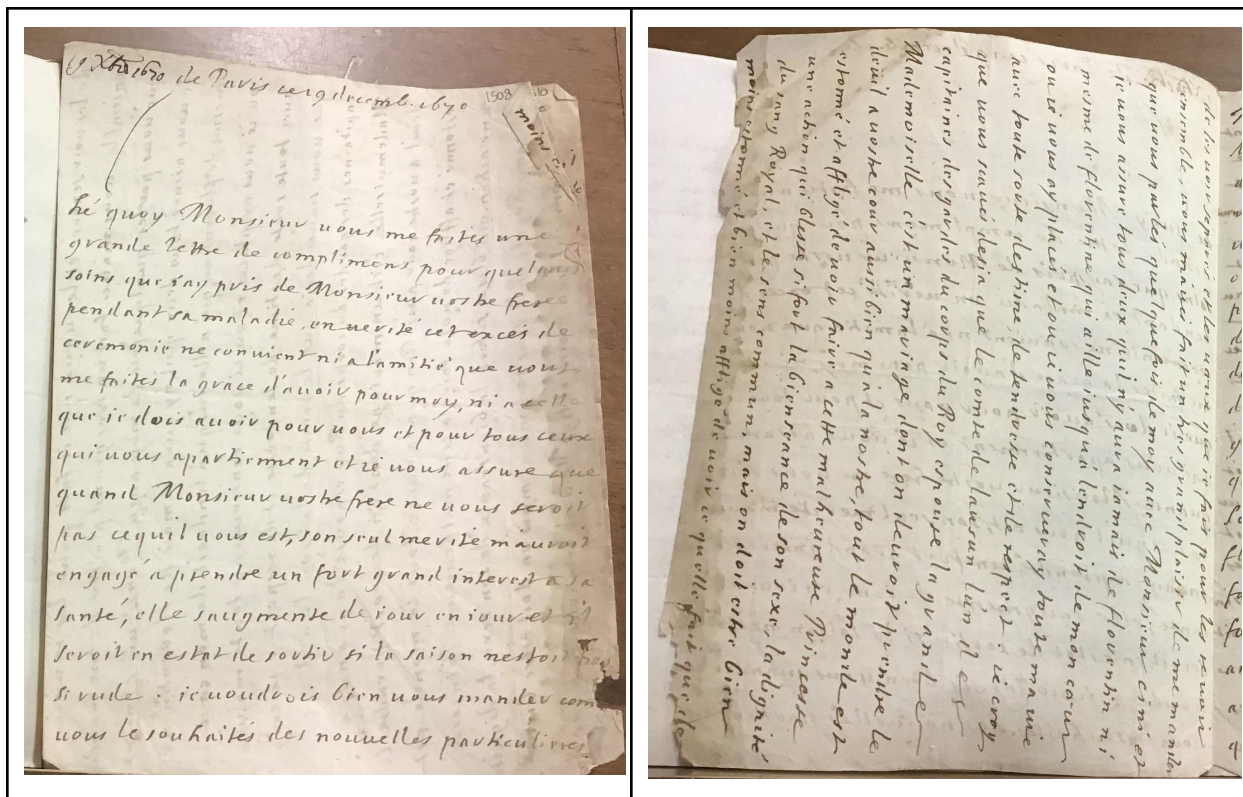 9 Xbre 1670
de Paris ce 19 decemb. 1670
1508
moins
hé quoy Monsieur uous me faites une
grande lettre de complimens pour quelques
soins que iay pris de Monsieur uostre frere
pendant sa maladie, en uerité cet exces de
ceremonie ne conuient ni a lamitié que uous
me faites la grace d'auoir pour moy, ni a cette
que ie dois auoir pour uous et pour tous ceux
qui uous apartiennent et ie uous assure que
quand Monsieur uostre frere ne uous seroit
pas cequil uous est, son seul merite mauroit
engagé a prendre un fort grand interest a sa
santé, elle saugmente de iour en iour et il
seroit en estat de sortir si la saison nestoit
si rude. ie uoudrois bien uous mander com
uous le souhaités des nouuelles particulieres
de les uoir et les ueaux que ie fais pour les reuoir
ensemble, uous maués fait un tres grand plaisir de me mander
que uous parlés quelque fois de moy auec Monsieur cini et
ie uous assure tous deux quil ny aura iamais de florentin ni
mesme de florentine qui aille iusqua lendroit de mon cœur
ou ie uous ay placés et ou ie uous conserueray toute ma uie
auec toute sorte destime de tendresse et de respect ie croy
que uous scaués desia que le comte de lausun lun des
capitaines des gardes du corps du Roy espouse la grande
Mademoiselle c'est un mariage dont on deuroit prendre le
deuil a uostre cour aussi bien qua la nostre, tout le monde est
estonné et affligé de uoir faire a cette malheureuse Princesse
une action qui blesse si fort la bienseance de son sexe, la dignité
du sang Royal, et le sens commun, mais on doit estre bien
moins estonné et bien moins affligé de uoir ce quelle fait que de